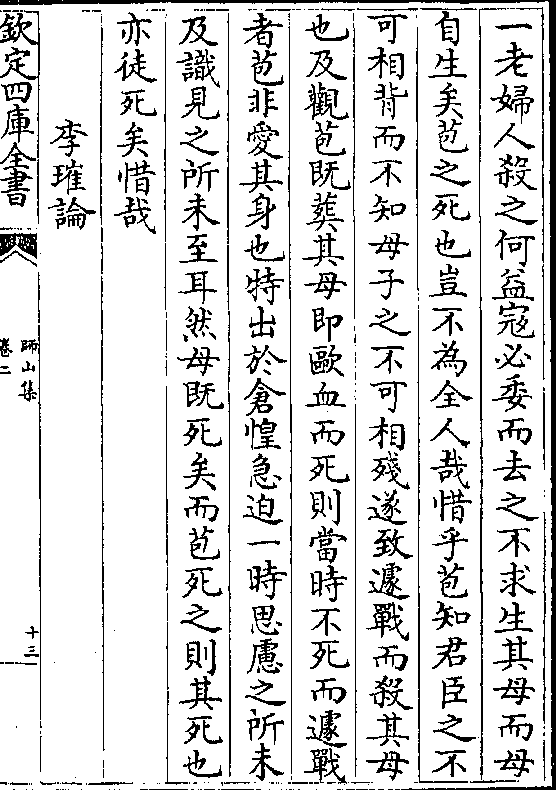 一老婦人殺之何益寇必委而去之不求生其母而母
自生矣苞之死也豈不為全人哉惜乎苞知君臣之不
可相背而不知母子之不可相殘遂致遽戰而殺其母
也及觀苞既葬其母即歐血而死則當時不死而遽戰
者苞非愛其身也特出於倉惶急迫一時思慮之所未
及識見之所未至耳然母既死矣而苞死之則其死也
亦徒死矣惜哉
李璀論
欽定四庫全書
師山集
卷二
十三